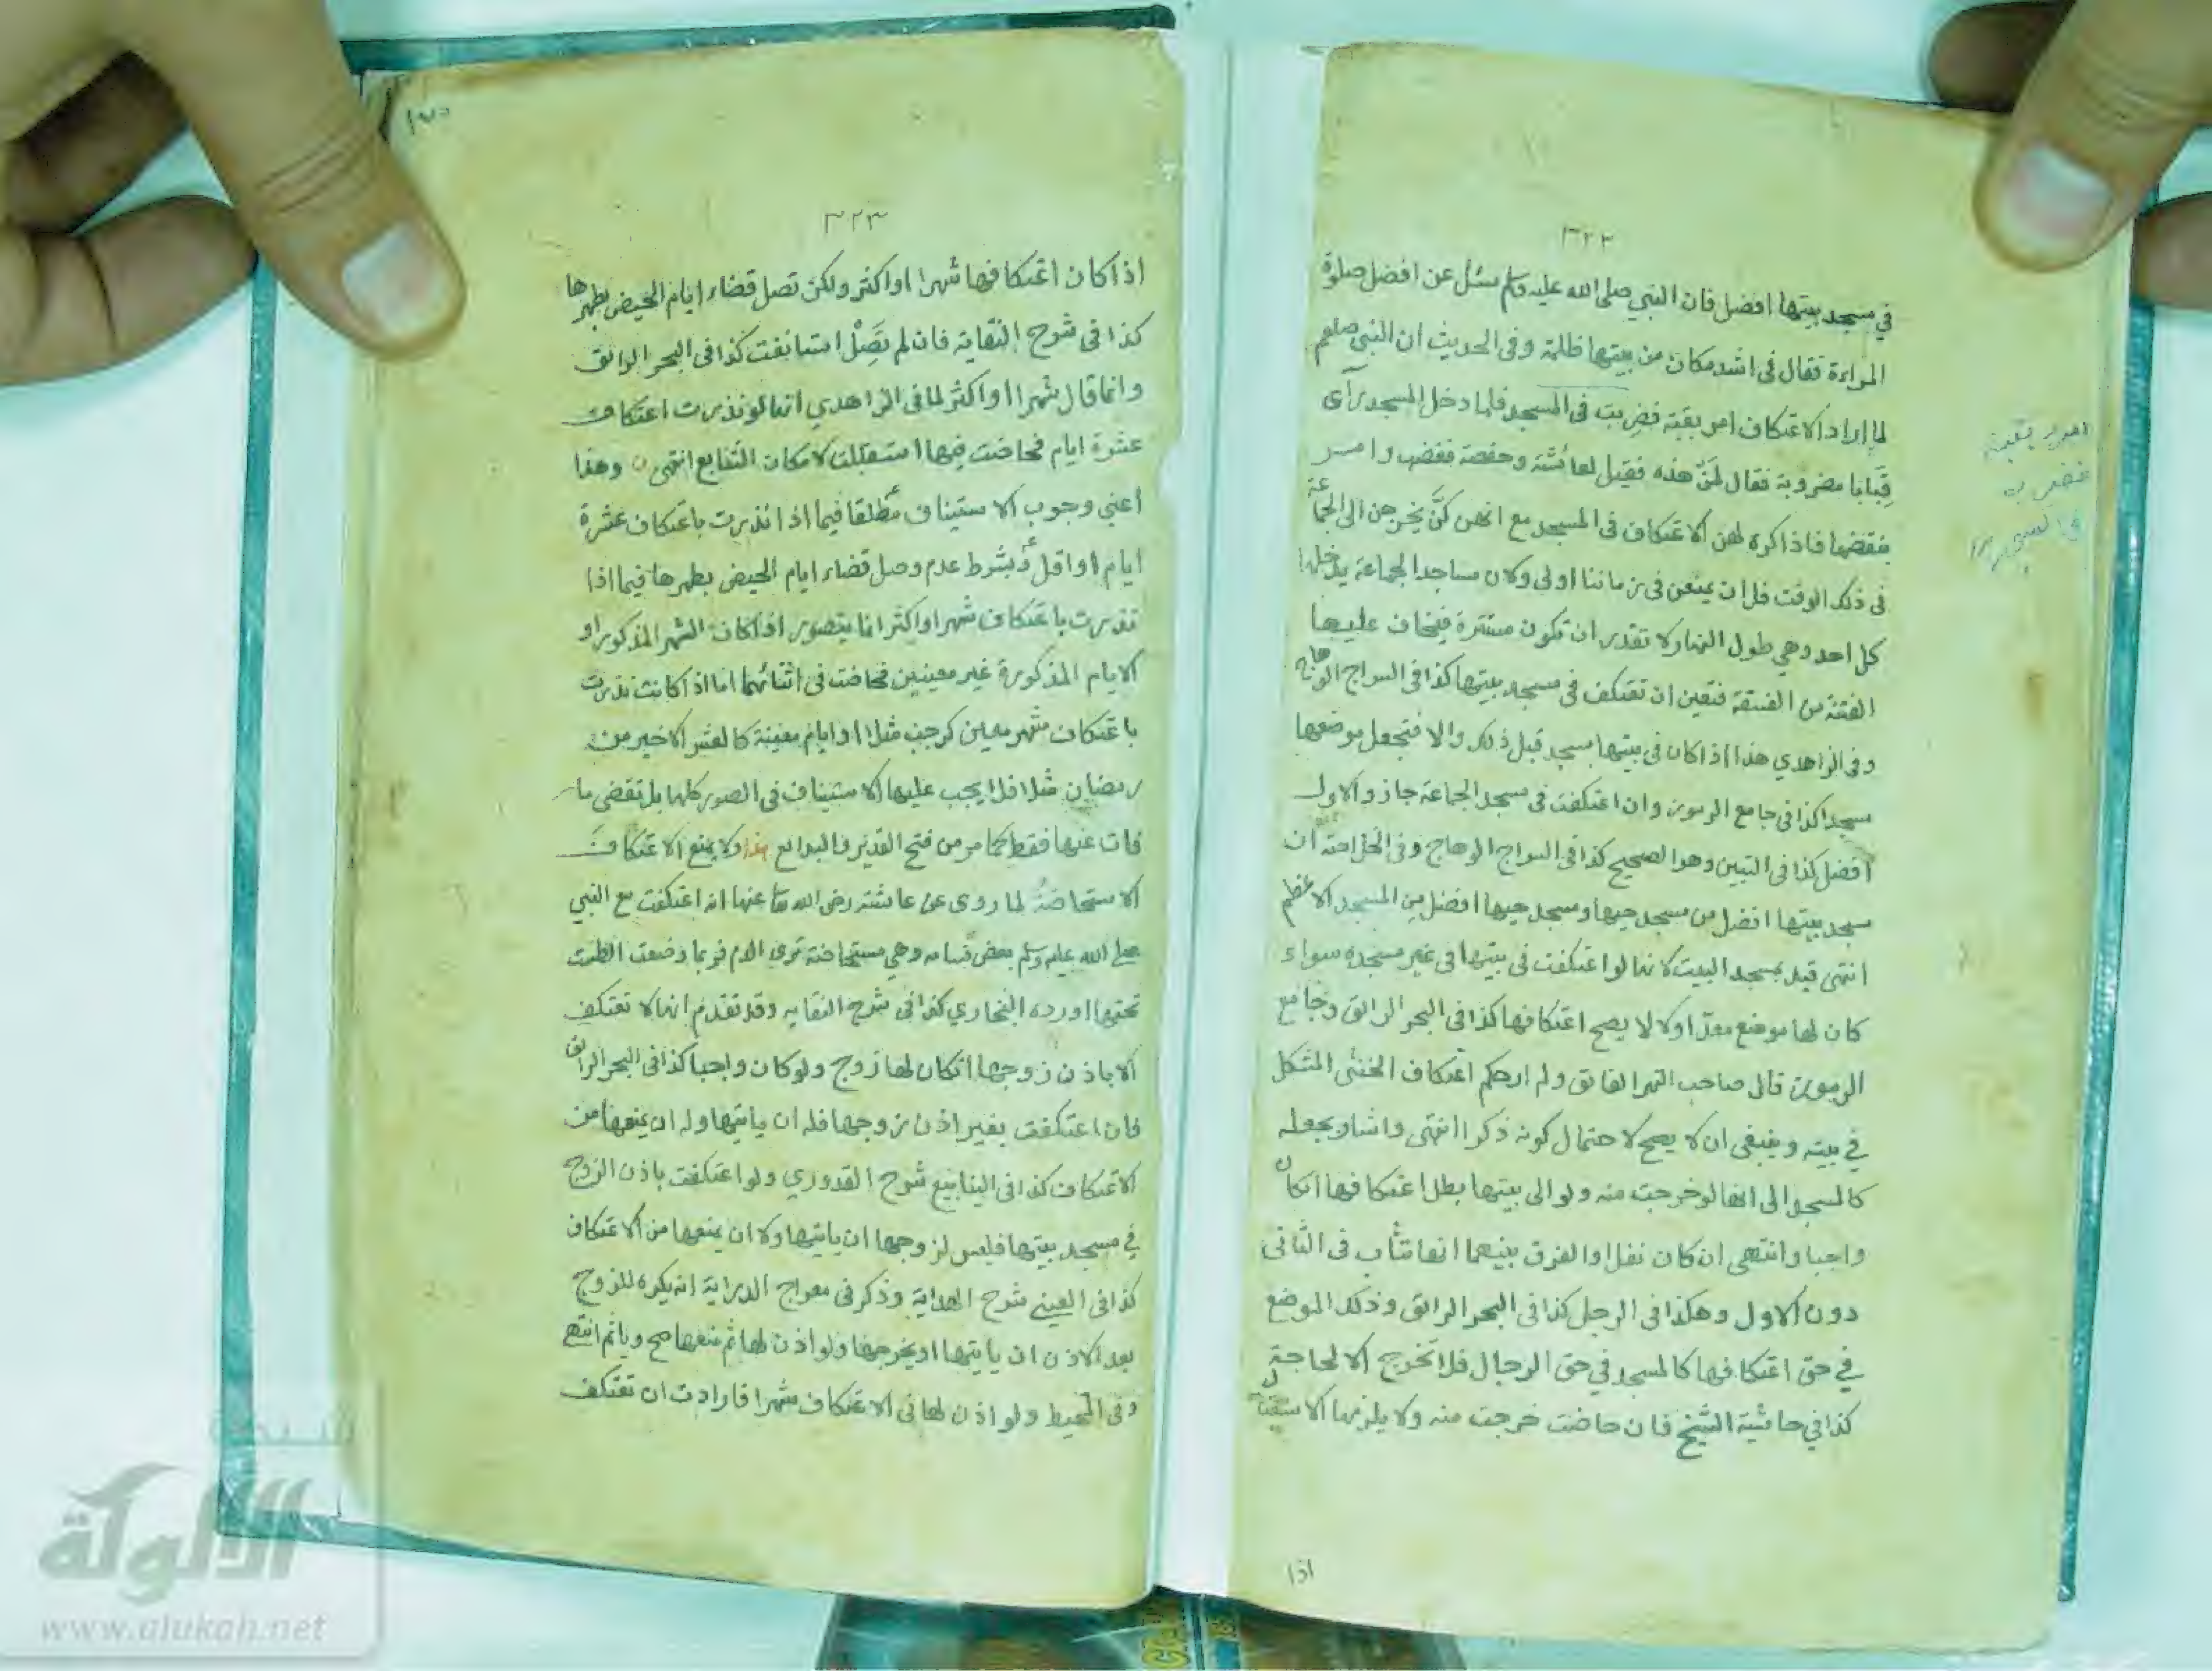 ٣٢٢
في مسجد بيتها افضل فان النبي صلى الله عليه وسلم سئل عن افضل صلوة
المراءة فقال فى اشد مكان من بيتها ظلمة وفى الحديث ان النبى صلعم
لما اراد الاعتكاف امر بقبة فضربت فى المسجد فلما دخل المسجد رآى
قبابا مضروبة فقال لمن هذه فقيل لعائشة وحفصة فغضب وامر
بنقضها فاذا كره لهن الاعتكاف فى المسجد مع انهن كن يخرجن الى الجماعة
فى ذلك الوقت فلان يمنعن فى زماننا اولى ولان مساجد الجماعة يدخلها
كل احد وهي طول النهار لا تقدر ان تكون مستترة فيخاف عليها
الفتنة من الفسقة فتعين ان تعتكف فى مسجد بيتها كذا فى السراج الوهاج
وفى الزاهدي هذا اذا كان فى بيتها مسجد قبل ذلك والا فتجعل موضعها
مسجدا كذا فى جامع الرموز وان اعتكفت فى مسجد الجماعة جاز والاول
افضل كذا فى التبين وهو الصحيح كذا فى السراج الوهاج وفى الخلاصة ان
مسجد بيتها افضل من مسجد حيها ومسجد حيها افضل من المسجد الاعظم
انتهى قيد بمسجد البيت لانها لو اعتكفت فى بيتها فى غير مسجده سواء
كان لها موضع معد اولا لا يصح اعتكافها كذا فى البحر الرائق وجامع
الرموز قال صاحب النهر الفائق ولم ار حكم اعتكاف الخنثى المشكل
في بيته وينبغى ان لا يصح لاحتمال كونه ذكرا انتهى واشار بجعله
كالمسجد الى انها لو خرجت منه ولو الى بيتها بطل اعتكافها انكان
واجبا وانتهى ان كان نفلا والفرق بينهما انها تثاب فى الثانى
دون الاول وهكذا فى الرجل كذا فى البحر الرائق وذلك الموضع
في حق اعتكافها كالمسجد في حق الرجال فلا تخرج الا لحاجة
كذا في حاشية الشيخ فان حاضت خرجت منه ولا يلزمها الاستقبال
اذا
امر بقبة
فضربت
فى المسجد
٣٢٣
اذا كان اعتكافها شهرا او اكثر ولكن تصل قضاء ايام الحيض بطهرها
كذا فى شرح النقاية فان لم تَصِلْ استانفت كذا فى البحر الرائق
وانما قال شهرا او اكثر لما فى الزاهدي انها لو نذرت اعتكاف
عشرة ايام فحاضت فيها استقبلت لامكان التتابع انتهى وهذا
أعني وجوب الاستيناف مطلقا فيما اذا نذرت باعتكاف عشرة
ايام او اقل وبشرط عدم وصل قضاء ايام الحيض بطهرها فيما اذا
نذرت باعتكاف شهر او اكثر انما يتصور اذا كان الشهر المذكور او
الايام المذكورة غير معينين فحاضت فى اثنائهما اما اذا كانت نذرت
باعتكاف شهر معين كرجب مثلا او ايام معينة كالعشر الاخير من
رمضان مثلا فلا يجب عليها الاستيناف فى الصور كلها بل تقضى ما
فات عنها فقط كما مر من فتح القدير والبدايع هذا ولا يمنع الاعتكاف
الاستحاضة لما روى عن عائشة رضى الله تعا عنها انه اعتكفت مع النبي
صلى الله عليه وسلم بعض نسائه وهي مستحاضة ترى الدم فربما وضعت الطست
تحتها اورده البخاري كذا فى شرح النقايه وقد تقدم انها لا تعتكف
الا باذن زوجها انكان لها زوج ولو كان واجبا كذا فى البحر الرائق
فان اعتكفت بغير اذن زوجها فله ان ياتيها وله ان يمنعها من
الاعتكاف كذا فى الينابيع شرح القدوري ولو اعتكفت باذن الزوج
في مسجد بيتها فليس لزوجها ان ياتيها ولا ان يمنعها من الاعتكاف
كذا فى العينى شرح الهداية وذكر فى معراج الدراية انه يكره للزوج
بعد الاذن ان ياتيها او يخرجها ولو اذن لها ثم منعها صح وياثم انتهى
وفى المحيط ولو اذن لها فى الاعتكاف شهرا فارادت ان تعتكف
شبكة
الألوكة
www.alukah.net